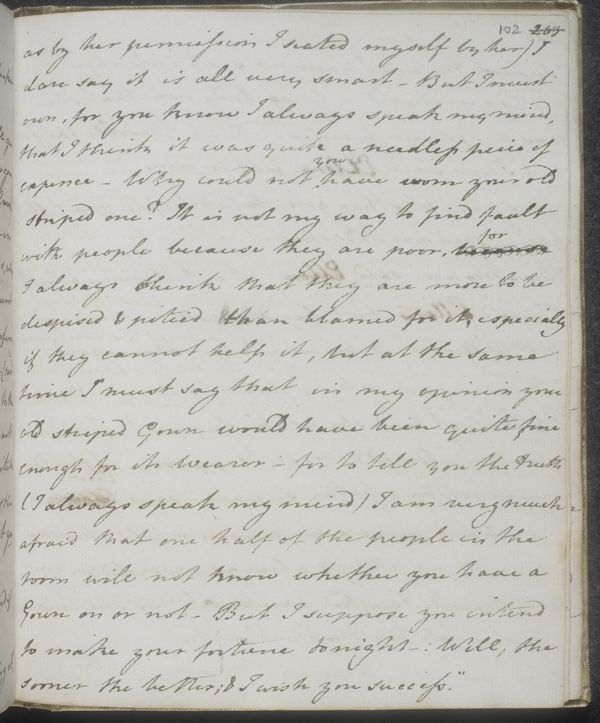 102 203
as by her permission I seated myself by her) I
dare say it is all very smart - But I must
own, for you know I always speak my mind,
that I think it was quite a needless peice of
expence - Why could not you have worn your old
striped one? It is not my way to find fault
with people because they are poor, for
I always think that they are more to be
despised & pitied than blamed for it, especially
if they cannot help it, but at the same
time I must say that in my opinion your
old striped Gown would have been quite fine
enough for its wearer - for to tell you the truth
(I always speak my mind) I am very much
afraid that one half of the people in the
room will not know whether you have a
Gown on or not - But I suppose you intend
to make your fortune tonight -: Well, the
sooner the better; & I wish you success."